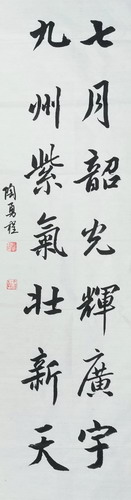 七月韶光輝廣宇
九州紫氣壯新天
陶勇程